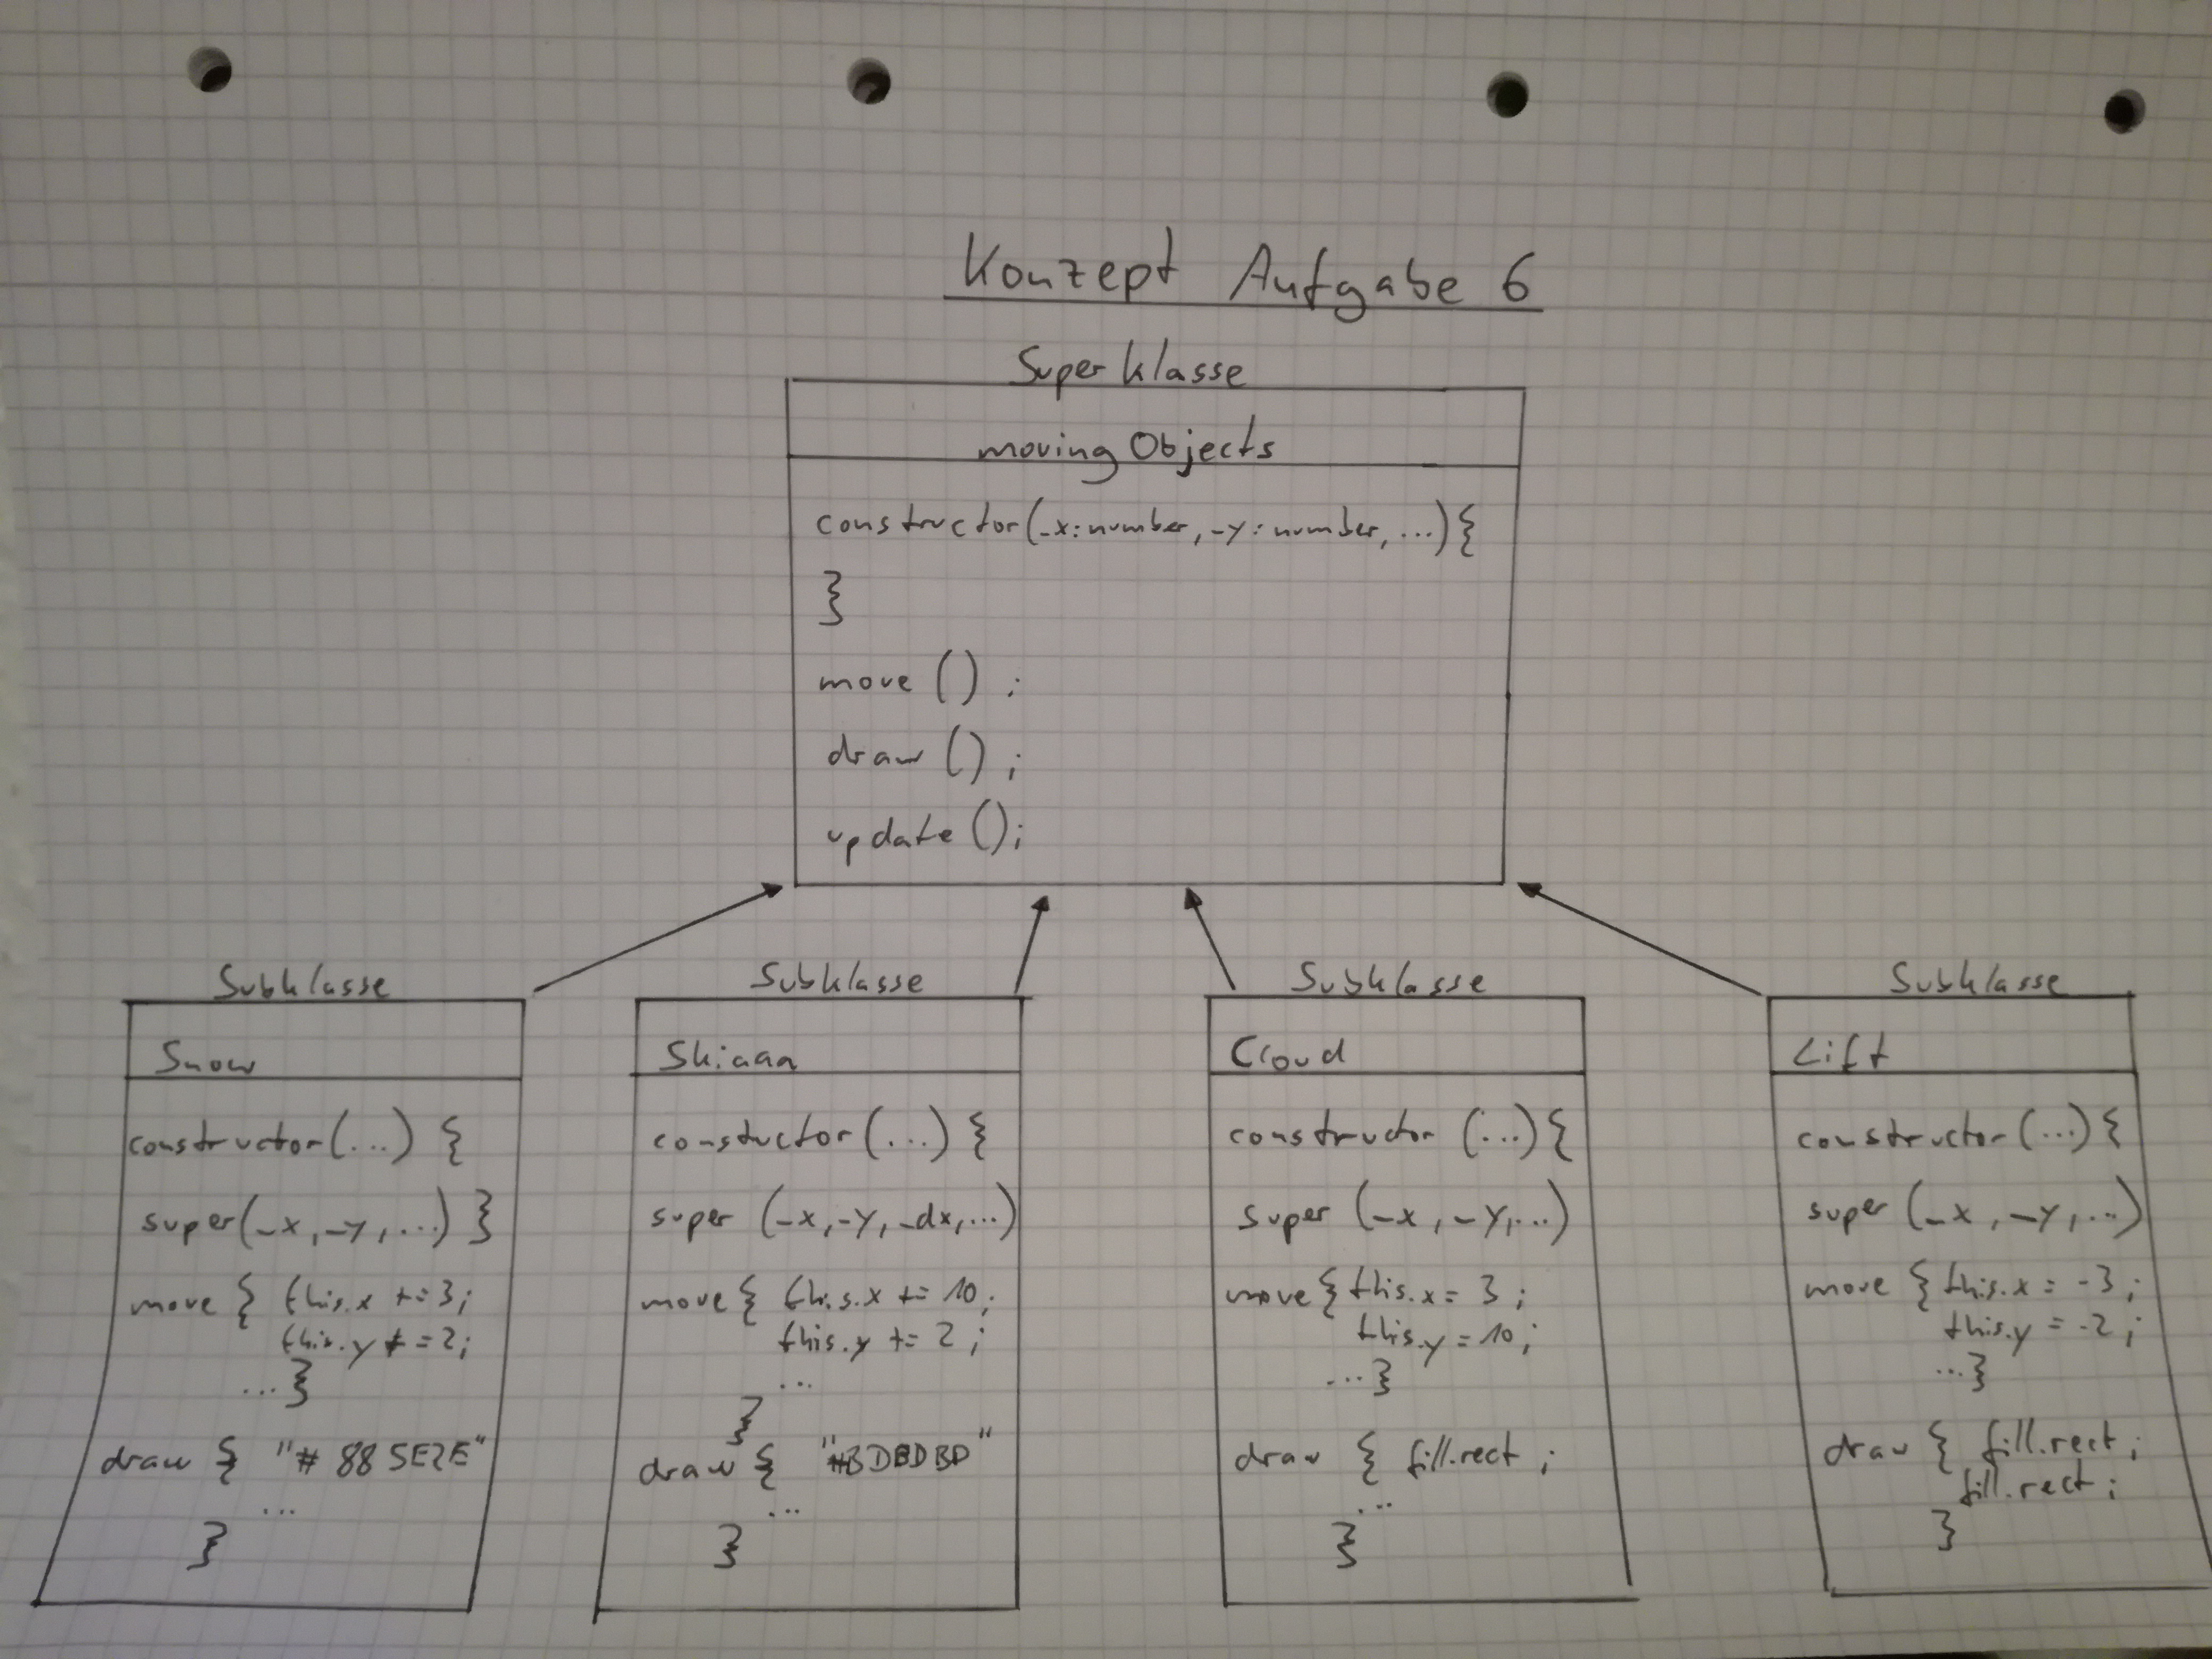 Konzept Aufgabe 6
Superklasse
movingObjects
constructor(_x:number, _y:number, ...){
}
move () ;
draw () ;
update ();
Subklasse
Snow
constructor(...) {
super(_x, _y, ...) }
move { this.x += 3;
this.y += 2;
... }
draw { "# 885E2E"
...
}
Subklasse
Skiaaa
constuctor (...) {
super (_x, _y, _dx, ...)
move { this.x += 10;
this.y += 2 ;
...
}
draw { "#BDBDBD"
...
}
Subklasse
Cloud
constructor (...) {
super (_x, _y, ...)
move { this.x = 3 ;
this.y = 10 ;
... }
draw { fill.rect ;
...
}
Subklasse
Lift
constructor (...) {
super (_x, _y, ...)
move { this.x = -3 ;
this.y = -2 ;
... }
draw { fill.rect ;
fill.rect ;
}